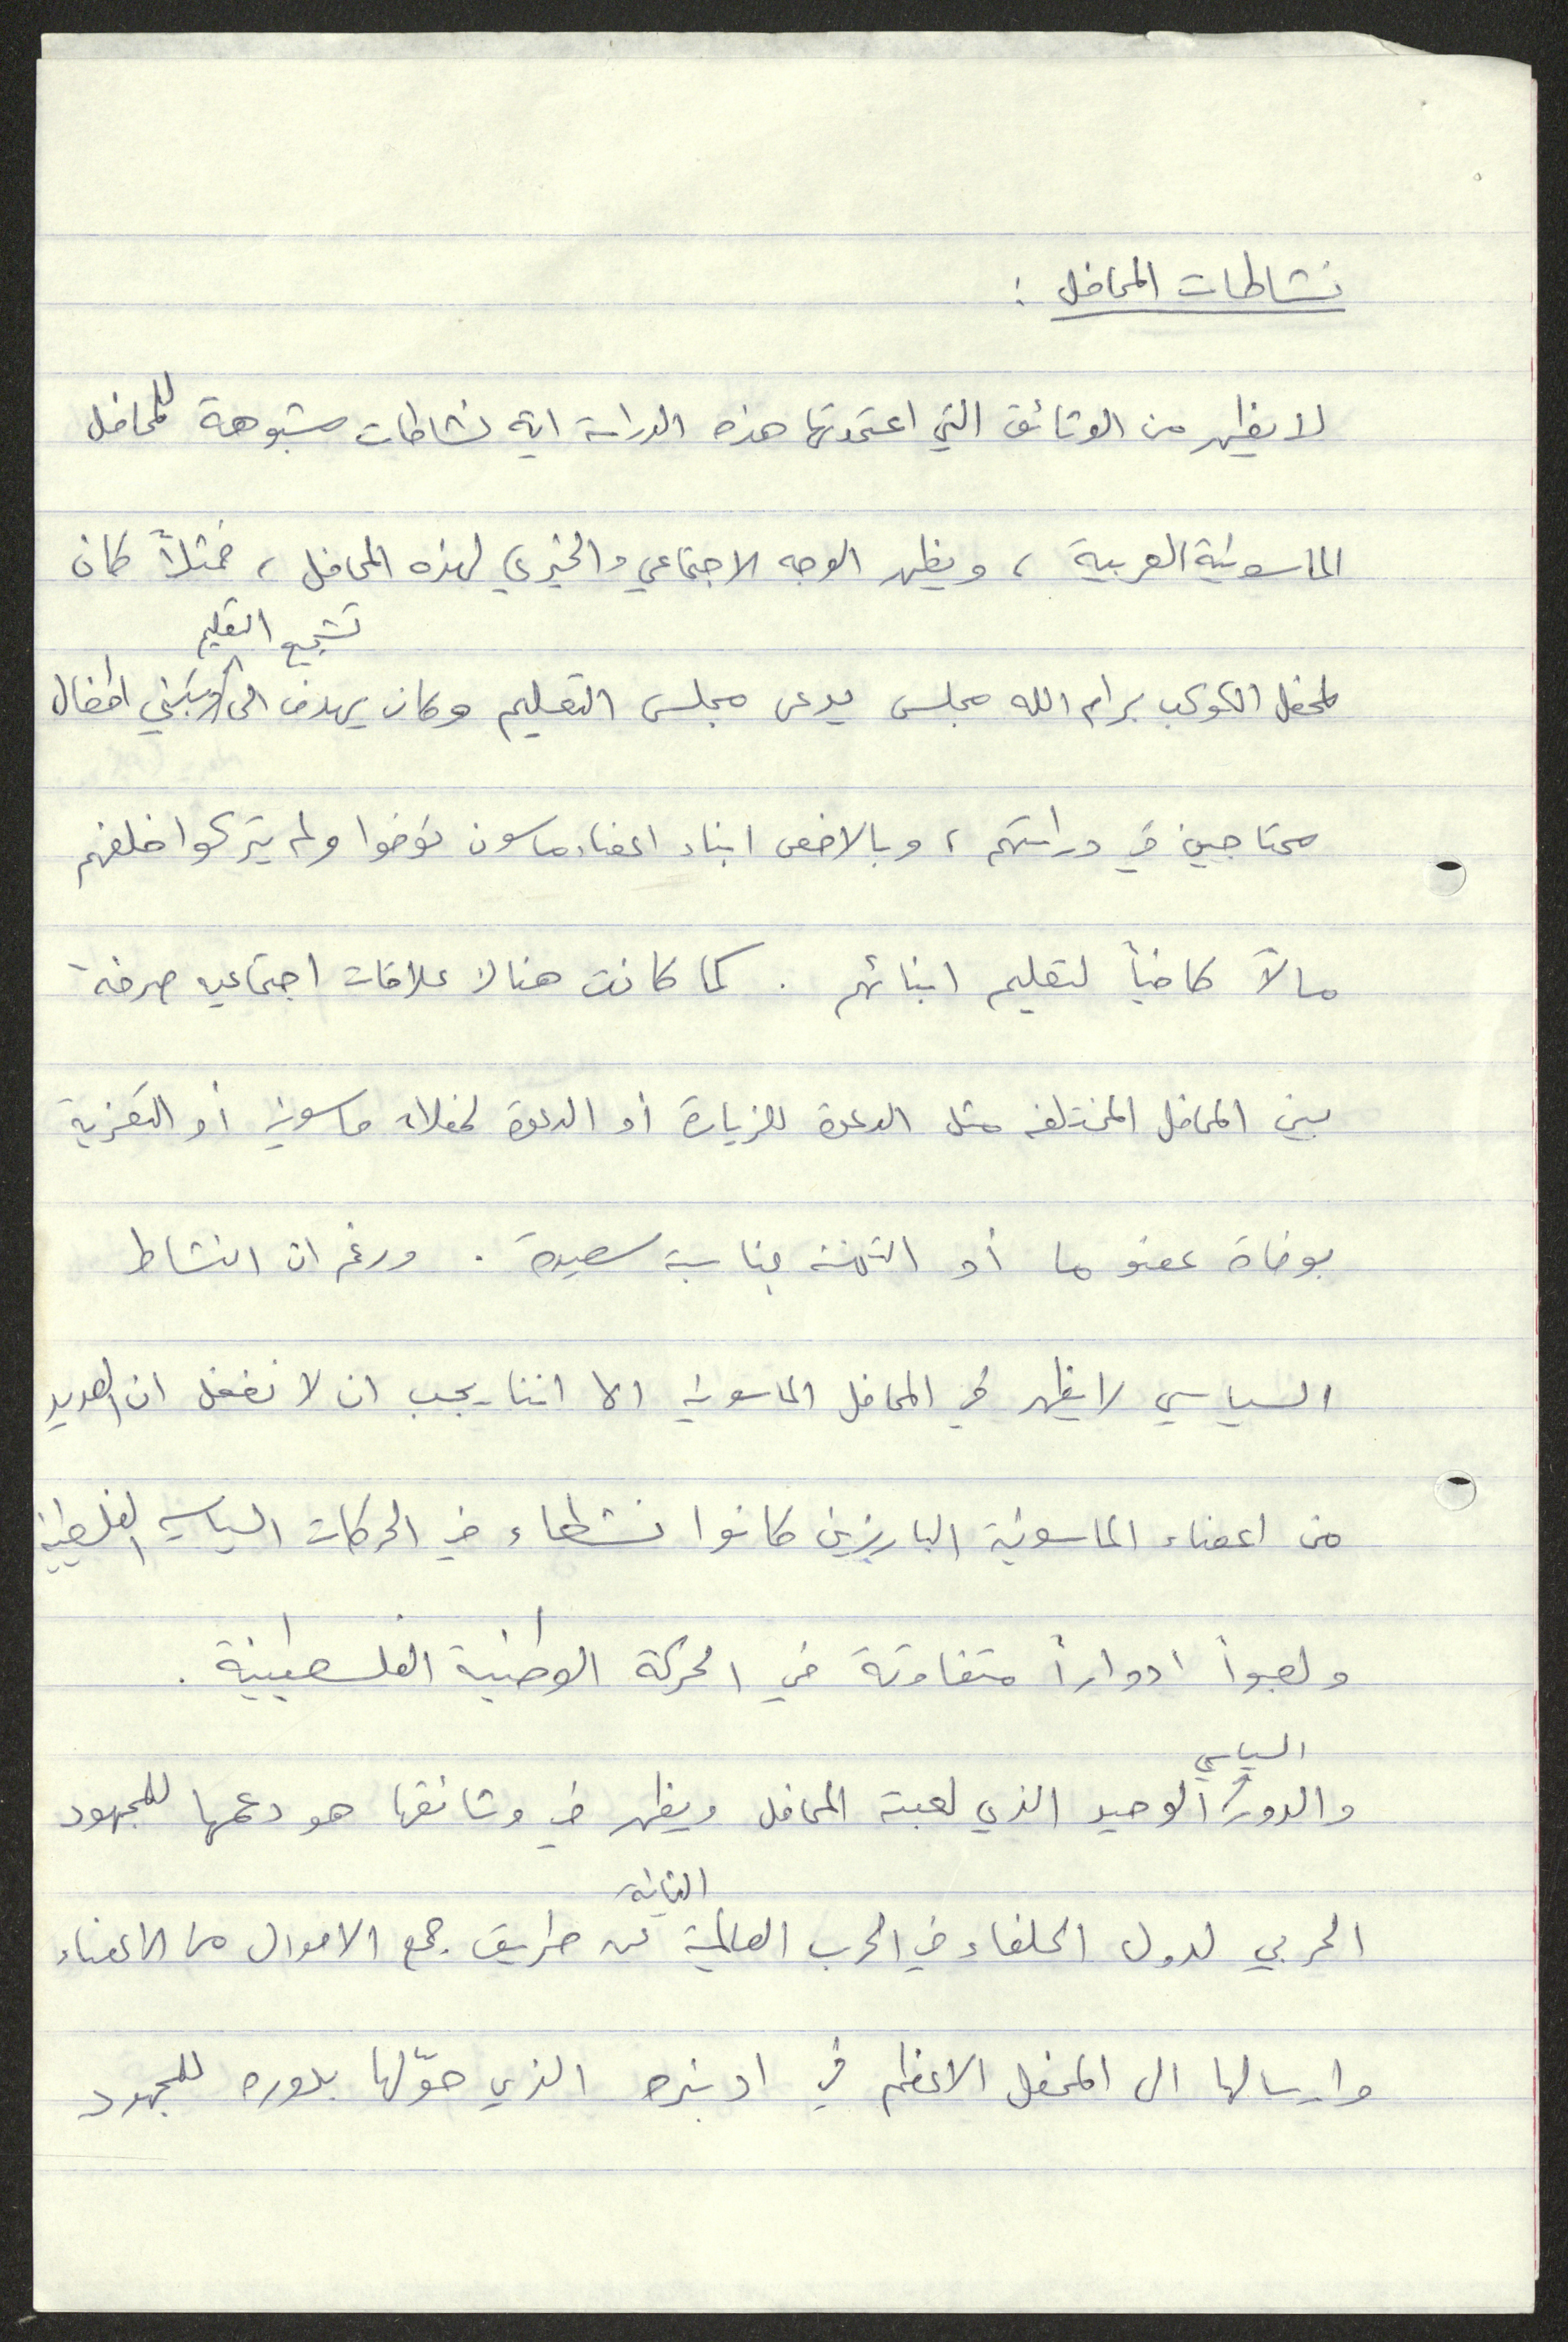 نشاطات المحافل :
لا يظهر من الوثائق التي اعتمدتها هذه الدراسة اية نشاطات مشبوهة للمحافل
الماسونية العربية ، ويظهر الوجه الاجتماعي والخيري لهذه المحافل ، فمثلاً كان
تشجيع التعليم
لمحفل الكوكب برام الله مجلس يدعى مجلس التعليم وكان يهدف الى وتبني اطفال
محتاجين في دراستهم ، وبالاخص ابناء اعضاء ماسون توفوا ولم يتركوا خلفهم
مالاً كافياً لتعليم ابنائهم . كما كانت هناك علاقات اجتماعيه صرفة
بين المحافل المختلفه مثل الدعوة للزيارة أو الدعوة لحفلات ماسونية أو التعزية
بوفاة عضو ما أو التهنئة بمناسبة سعيدة . ورغم ان النشاط
السياسي لا يظهر في المحافل الماسونية الا اننا يجب ان لا نغفل ان العديد
من اعضاء الماسونية البارزين كانوا نشطاء في الحركات السياسيه الفلسطينية
ولعبوا ادواراً متفاوتة في الحركة الوطنية الفلسطينية .
السياسي
والدور الوحيد الذي لعبته المحافل ويظهر في وثائقها هو دعمها للمجهود
الثانية
الحربي لدول الحلفاء في الحرب العالمية عن طريق جمع الاموال من الاعضاء
وارسالها الى المحفل الاعظم في ادنبره الذي حوّلها بدوره للمجهود